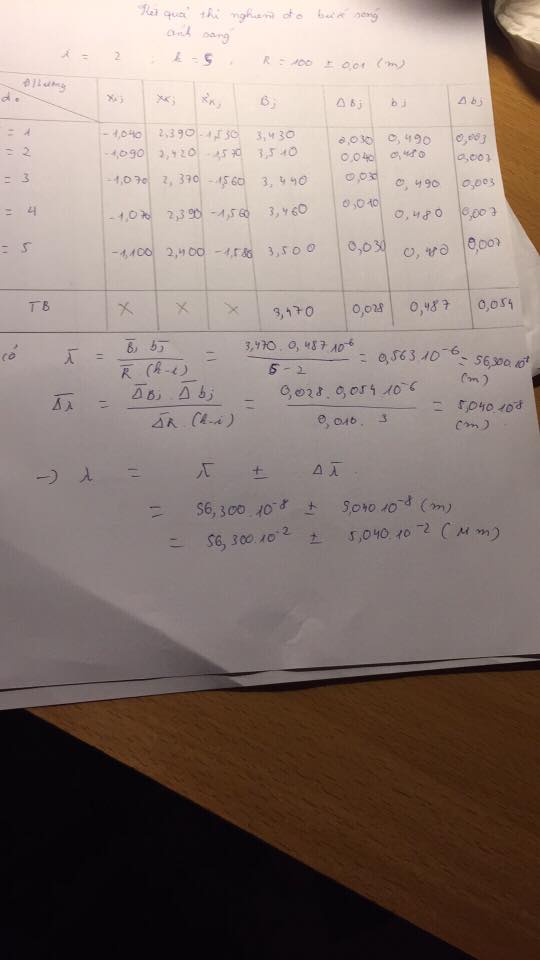 Kết quả thí nghiệm đo bước sóng
ánh sáng
i = 2 , k = 5 , R = 100 ± 0,01 (m)
Đ/lường xi,j xk,j x'k,j Bj ΔBj bj Δbj
đo
= 1 -1,040 2,390 -1,530 3,430 0,030 0,490 0,003
= 2 -1,090 2,420 -1,570 3,510 0,040 0,480 0,007
= 3 -1,070 2,370 -1,560 3,440 0,030 0,490 0,003
= 4 -1,070 2,390 -1,560 3,460 0,010 0,480 0,007
= 5 -1,100 2,400 -1,580 3,500 0,030 0,480 0,007
TB X X X 3,470 0,028 0,487 0,054
có λ̄ = B̄j b̄j / R̄ (k-i) = 3,470 . 0,487 10⁻⁶ / 5 - 2 = 0,563 10⁻⁶ = 56,300.10⁻⁸ (m)
Δ̄λ = Δ̄Bj . Δ̄bj / Δ̄R . (k-i) = 0,028 . 0,054 10⁻⁶ / 0,010 . 3 = 5,040.10⁻⁸ (m)
→) λ = λ̄ ± Δλ̄
= 56,300.10⁻⁸ ± 5,040 10⁻⁸ (m)
= 56,300.10⁻² ± 5,040.10⁻² (μm)